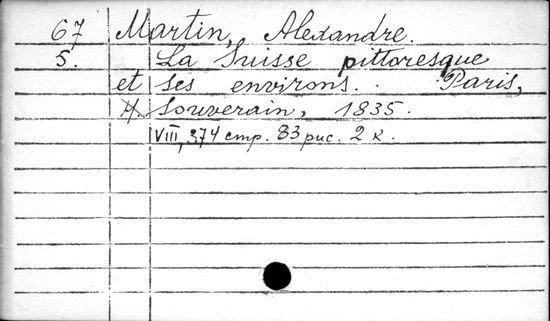 67 Martin, Alexandre.
5. La Suisse pittoresque
et ses environs. Paris,
H. Souverain, 1835.
VIII, 374 стр. 83 рис. 2 к.